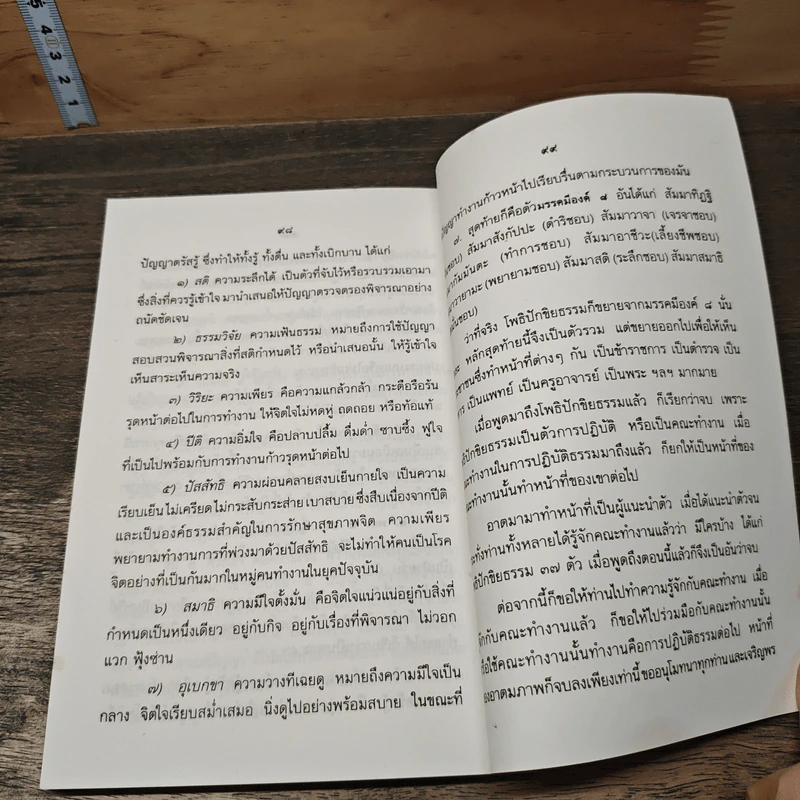 5
4
3
2
1
๙๘
ปัญญาตรัสรู้ ซึ่งทำให้ทั้งรู้ ทั้งตื่น และทั้งเบิกบาน ได้แก่
๑) สติ ความระลึกได้ เป็นตัวที่จับไว้หรือรวบรวมเอามา
ซึ่งสิ่งที่ควรรู้เข้าใจ มานำเสนอให้ปัญญาตรวจตรองพิจารณาอย่าง
ถนัดชัดเจน
๒) ธรรมวิจัย ความเฟ้นธรรม หมายถึงการใช้ปัญญา
สอบสวนพิจารณาสิ่งที่สติกำหนดไว้ หรือนำเสนอนั้น ให้รู้เข้าใจ
เห็นสาระเห็นความจริง
๓) วิริยะ ความเพียร คือความแกล้วกล้า กระตือรือร้น
รุดหน้าต่อไปในการทำงาน ให้จิตใจไม่หดหู่ ถดถอย หรือท้อแท้
๔) ปีติ ความอิ่มใจ คือปลาบปลื้ม ดื่มด่ำ ซาบซึ้ง ฟูใจ
ที่เป็นไปพร้อมกับการทำงานก้าวรุดหน้าต่อไป
๕) ปัสสัทธิ ความผ่อนคลายสงบเย็นกายใจ เป็นความ
เรียบเย็น ไม่เครียด ไม่กระสับกระส่าย เบาสบาย ซึ่งสืบเนื่องจากปีติ
และเป็นองค์ธรรมสำคัญในการรักษาสุขภาพจิต ความเพียร
พยายามทำงานการที่พ่วงมาด้วยปัสสัทธิ จะไม่ทำให้คนเป็นโรค
จิตอย่างที่เป็นกันมากในหมู่คนทำงานในยุคปัจจุบัน
๖) สมาธิ ความมีใจตั้งมั่น คือจิตใจแน่วแน่อยู่กับสิ่งที่
กำหนดเป็นหนึ่งเดียว อยู่กับกิจ อยู่กับเรื่องที่พิจารณา ไม่วอก
แวก ฟุ้งซ่าน
๗) อุเบกขา ความวางทีเฉยดู หมายถึงความมีใจเป็น
กลาง จิตใจเรียบสม่ำเสมอ นิ่งดูไปอย่างพร้อมสบาย ในขณะที่
๙๙
ปัญญาทำงานก้าวหน้าไปเรียบรื่นตามกระบวนการของมัน
๗. สุดท้ายก็คือตัวมรรคมีองค์ ๘ อันได้แก่ สัมมาทิฏฐิ
ชอบ) สัมมาสังกัปปะ (ดำริชอบ) สัมมาวาจา (เจรจาชอบ)
มากัมมันตะ (ทำการชอบ) สัมมาอาชีวะ(เลี้ยงชีพชอบ)
มาวายามะ (พยายามชอบ) สัมมาสติ (ระลึกชอบ) สัมมาสมาธิ
มั่นชอบ)
ว่าที่จริง โพธิปักขิยธรรมก็ขยายจากมรรคมีองค์ ๘ นั้น
ละ หลักสุดท้ายนี้จึงเป็นตัวรวม แต่ขยายออกไปเพื่อให้เห็น
ะชาชนซึ่งทำหน้าที่ต่างๆ กัน เป็นข้าราชการ เป็นตำรวจ เป็น
าร เป็นแพทย์ เป็นครูอาจารย์ เป็นพระ ฯลฯ มากมาย
เมื่อพูดมาถึงโพธิปักขิยธรรมแล้ว ก็เรียกว่าจบ เพราะ
ธิปักขิยธรรมเป็นตัวการปฏิบัติ หรือเป็นคณะทำงาน เมื่อ
ะทำงานในการปฏิบัติธรรมมาถึงแล้ว ก็ยกให้เป็นหน้าที่ของ
ะทำงานนั้นทำหน้าที่ของเขาต่อไป
อาตมามาทำหน้าที่เป็นผู้แนะนำตัว เมื่อได้แนะนำตัวจน
ะทั่งท่านทั้งหลายได้รู้จักคณะทำงานแล้วว่า มีใครบ้าง ได้แก่
ธิปักขิยธรรม ๓๗ ตัว เมื่อพูดถึงตอนนี้แล้วก็จึงเป็นอันว่าจบ
ต่อจากนี้ก็ขอให้ท่านไปทำความรู้จักกับคณะทำงาน เมื่อ
จักกับคณะทำงานแล้ว ก็ขอให้ไปร่วมมือกับคณะทำงานนั้น
รือใช้คณะทำงานนั้นทำงานคือการปฏิบัติธรรมต่อไป หน้าที่
องอาตมภาพก็จบลงเพียงเท่านี้ ขออนุโมทนาทุกท่าน และเจริญพร